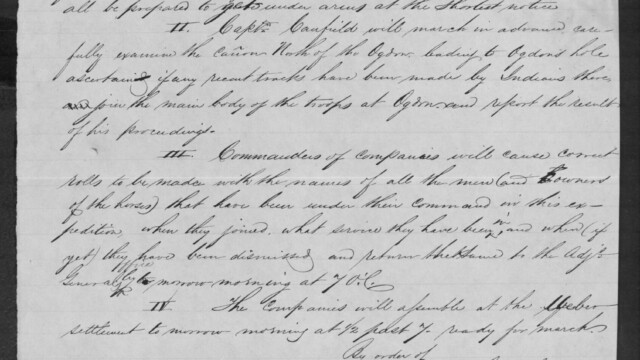 all be prepared to get under arms at the Shortest notice
II. Captn. Canfield will march in advance, care-
fully examine the Cañon North of the Ogdon leading to Ogdons hole
ascertain if any recent tracks have been made by Indians there
join the main body of the troops at Ogdon and report the result
of his proceedings.
III Commanders of companies will cause correct
rolls to be made with the names of all the men (and owners
of the horses) that have been under their command in this ex-
pedition, when they joined, what service they have been in, and when (if
yet) they have been dismissed, and return the same to the Adjt
General's office by to morrow morning at 7 O.C.
IV The Companies will assemble at the Weber
settlement to morrow morning at 1/2 past 7 ready for march.
By order of